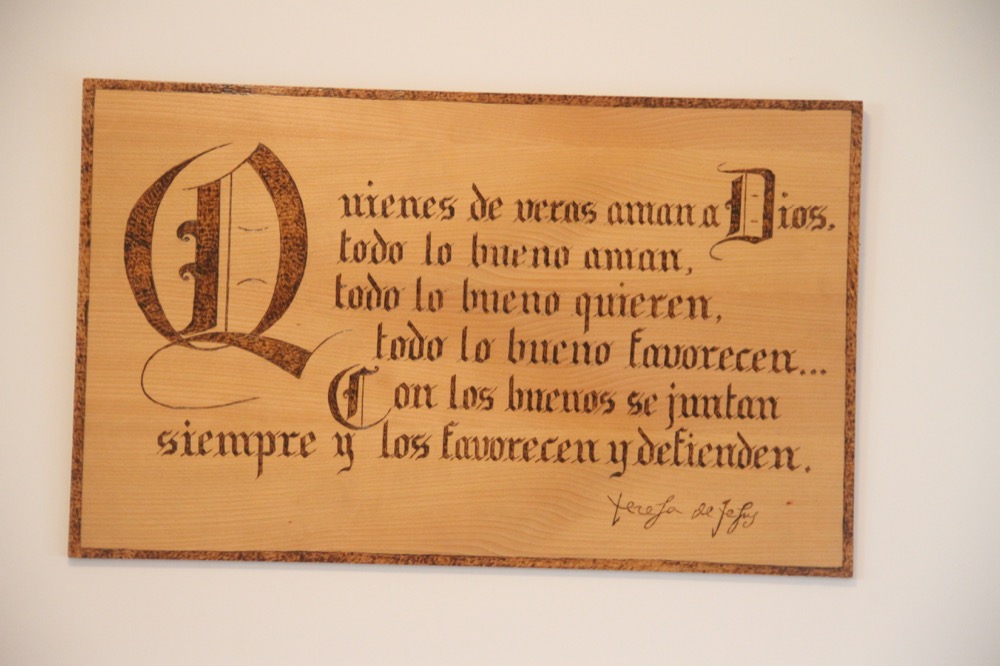 Quienes de veras aman a Dios,
todo lo bueno aman,
todo lo bueno quieren,
todo lo bueno favorecen...
Con los buenos se juntan
siempre y los favorecen y defienden.
teresa de Jesus